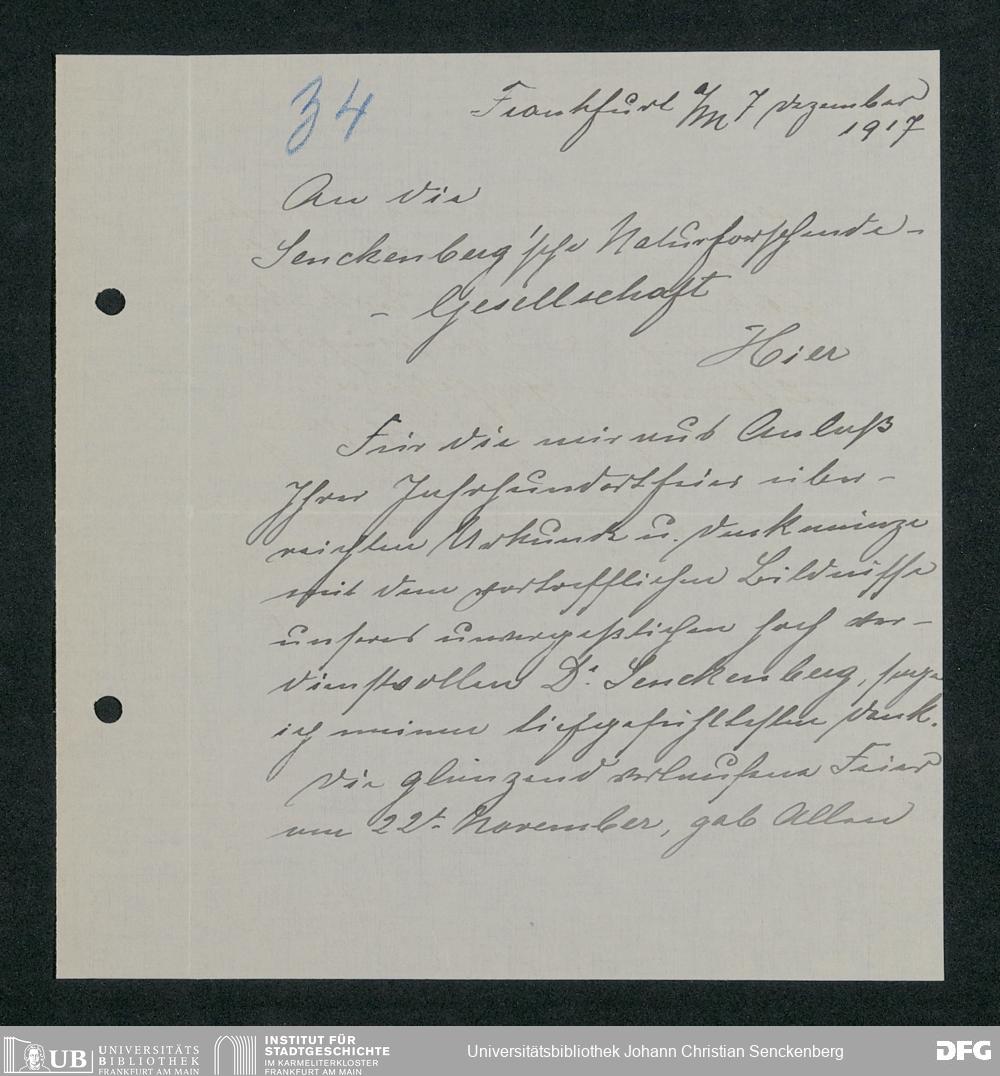 34
Frankfurt a/M 7 Dezember
1917
An die
Senckenberg'sche Naturforschende-
- Gesellschaft
Hier
Für die mir aus Anlaß
Ihrer Jahrhundertfeier über-
reichten Urkunde u. Denkmünze
mit dem vortrefflichen Bildnisse
unseres unvergeßlichen hoch ver-
dienstvollen Dr. Senckenberg, sage
ich meinen tiefgefühltesten Dank.
Die glänzend verlaufene Feier
am 22t. November, gab Allen
UB UNIVERSITÄTS
BIBLIOTHEK
FRANKFURT AM MAIN
INSTITUT FÜR
STADTGESCHICHTE
IM KARMELITERKLOSTER
FRANKFURT AM MAIN
Universitätsbibliothek Johann Christian Senckenberg
DFG